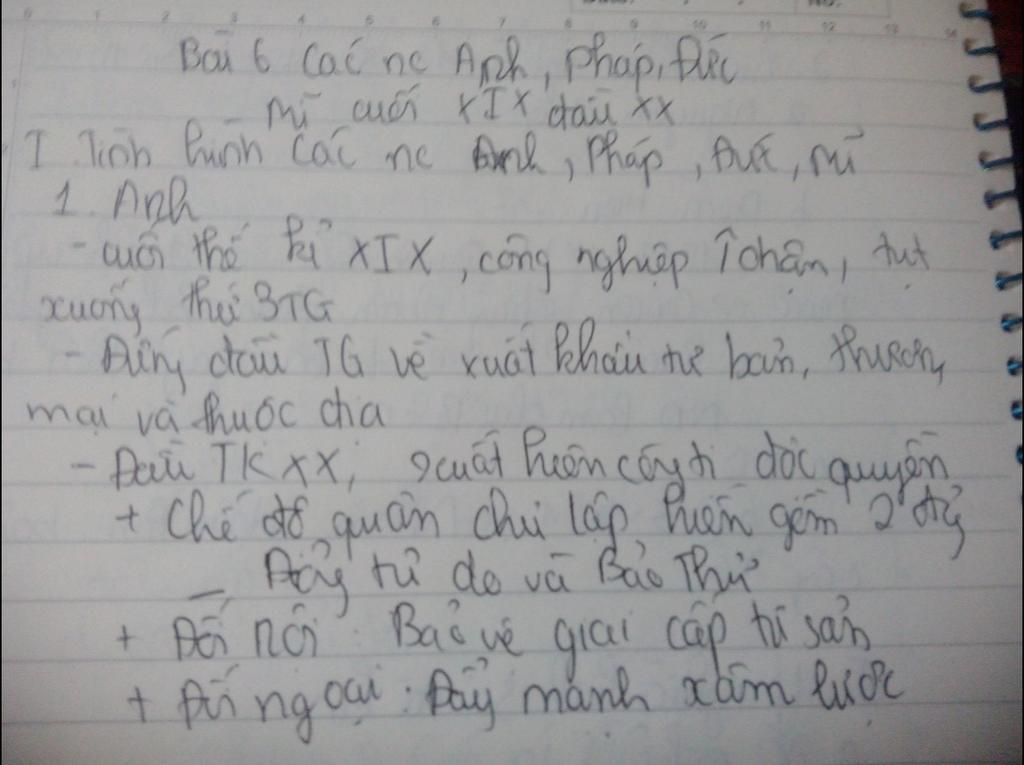 Bài 6 Các nc Anh, Pháp, Đức
Mĩ cuối XIX đầu XX
I. Tình hình các nc Anh, Pháp, Đức, Mĩ
1. Anh
- cuối thế kỉ XIX, công nghiệp ↑ chậm, tụt
xuống thứ 3 TG
- Đứng đầu TG về xuất khẩu tư bản, thương
mại và thuộc địa
- Đầu TK XX, xuất hiện công ti độc quyền
+ Chế độ quân chủ lập hiến gồm 2 đảg
_ Đảg tự do và Bảo Thủ
+ Đối nội : Bảo vệ giai cấp tư sản
+ Đối ngoại : Đẩy mạnh xâm lược